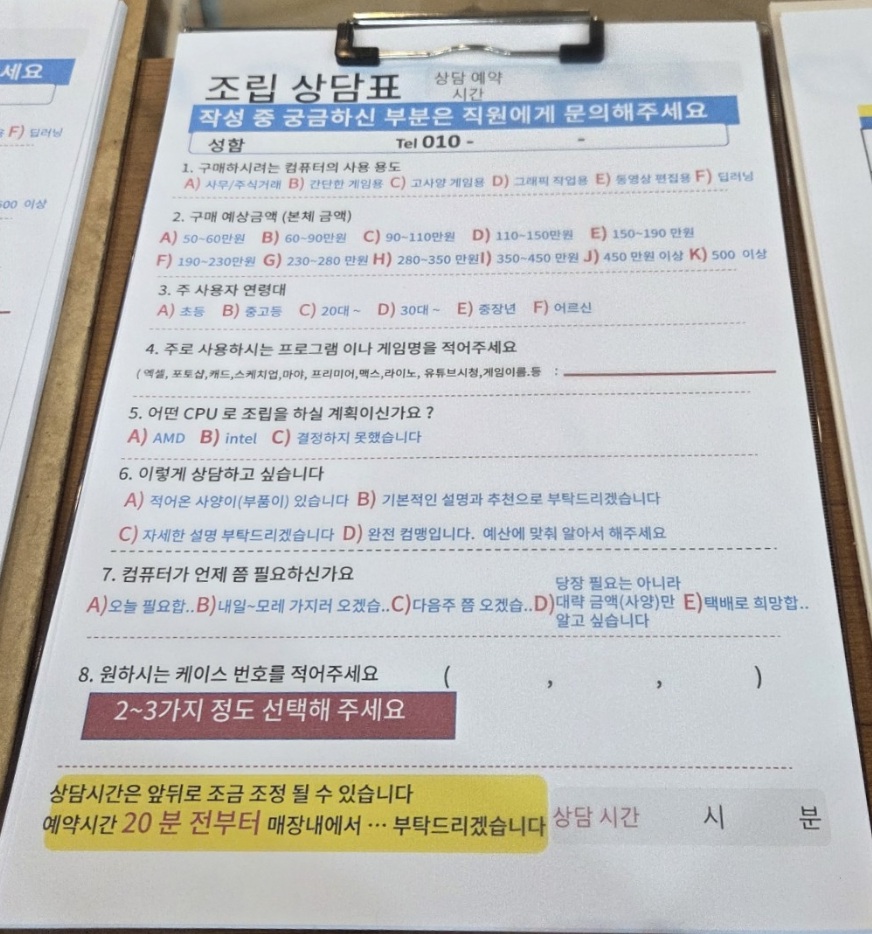 세요
F) 딥러닝
500 이상
조립 상담표
상담 예약
시간
작성 중 궁금하신 부분은 직원에게 문의해주세요
성함 Tel 010 - -
1. 구매하시려는 컴퓨터의 사용 용도
A) 사무/주식거래 B) 간단한 게임용 C) 고사양 게임용 D) 그래픽 작업용 E) 동영상 편집용 F) 딥러닝
2. 구매 예상금액 (본체 금액)
A) 50~60만원 B) 60~90만원 C) 90~110만원 D) 110~150만원 E) 150~190 만원
F) 190~230만원 G) 230~280 만원 H) 280~350 만원 I) 350~450 만원 J) 450 만원 이상 K) 500 이상
3. 주 사용자 연령대
A) 초등 B) 중고등 C) 20대 ~ D) 30대 ~ E) 중장년 F) 어르신
4. 주로 사용하시는 프로그램 이나 게임명을 적어주세요
( 엑셀, 포토샵,캐드,스케치업,마야, 프리미어,맥스,라이노, 유튜브시청,게임이름.등 :
5. 어떤 CPU 로 조립을 하실 계획이신가요 ?
A) AMD B) intel C) 결정하지 못했습니다
6. 이렇게 상담하고 싶습니다
A) 적어온 사양이(부품이) 있습니다 B) 기본적인 설명과 추천으로 부탁드리겠습니다
C) 자세한 설명 부탁드리겠습니다 D) 완전 컴맹입니다. 예산에 맞춰 알아서 해주세요
7. 컴퓨터가 언제 쯤 필요하신가요
A)오늘 필요합.. B)내일~모레 가지러 오겠습.. C)다음주 쯤 오겠습.. D)당장 필요는 아니라
대략 금액(사양)만
알고 싶습니다
E)택배로 희망합..
8. 원하시는 케이스 번호를 적어주세요 ( , , )
2~3가지 정도 선택해 주세요
상담시간은 앞뒤로 조금 조정 될 수 있습니다
예약시간 20 분 전부터 매장내에서 ··· 부탁드리겠습니다
상담 시간 시 분